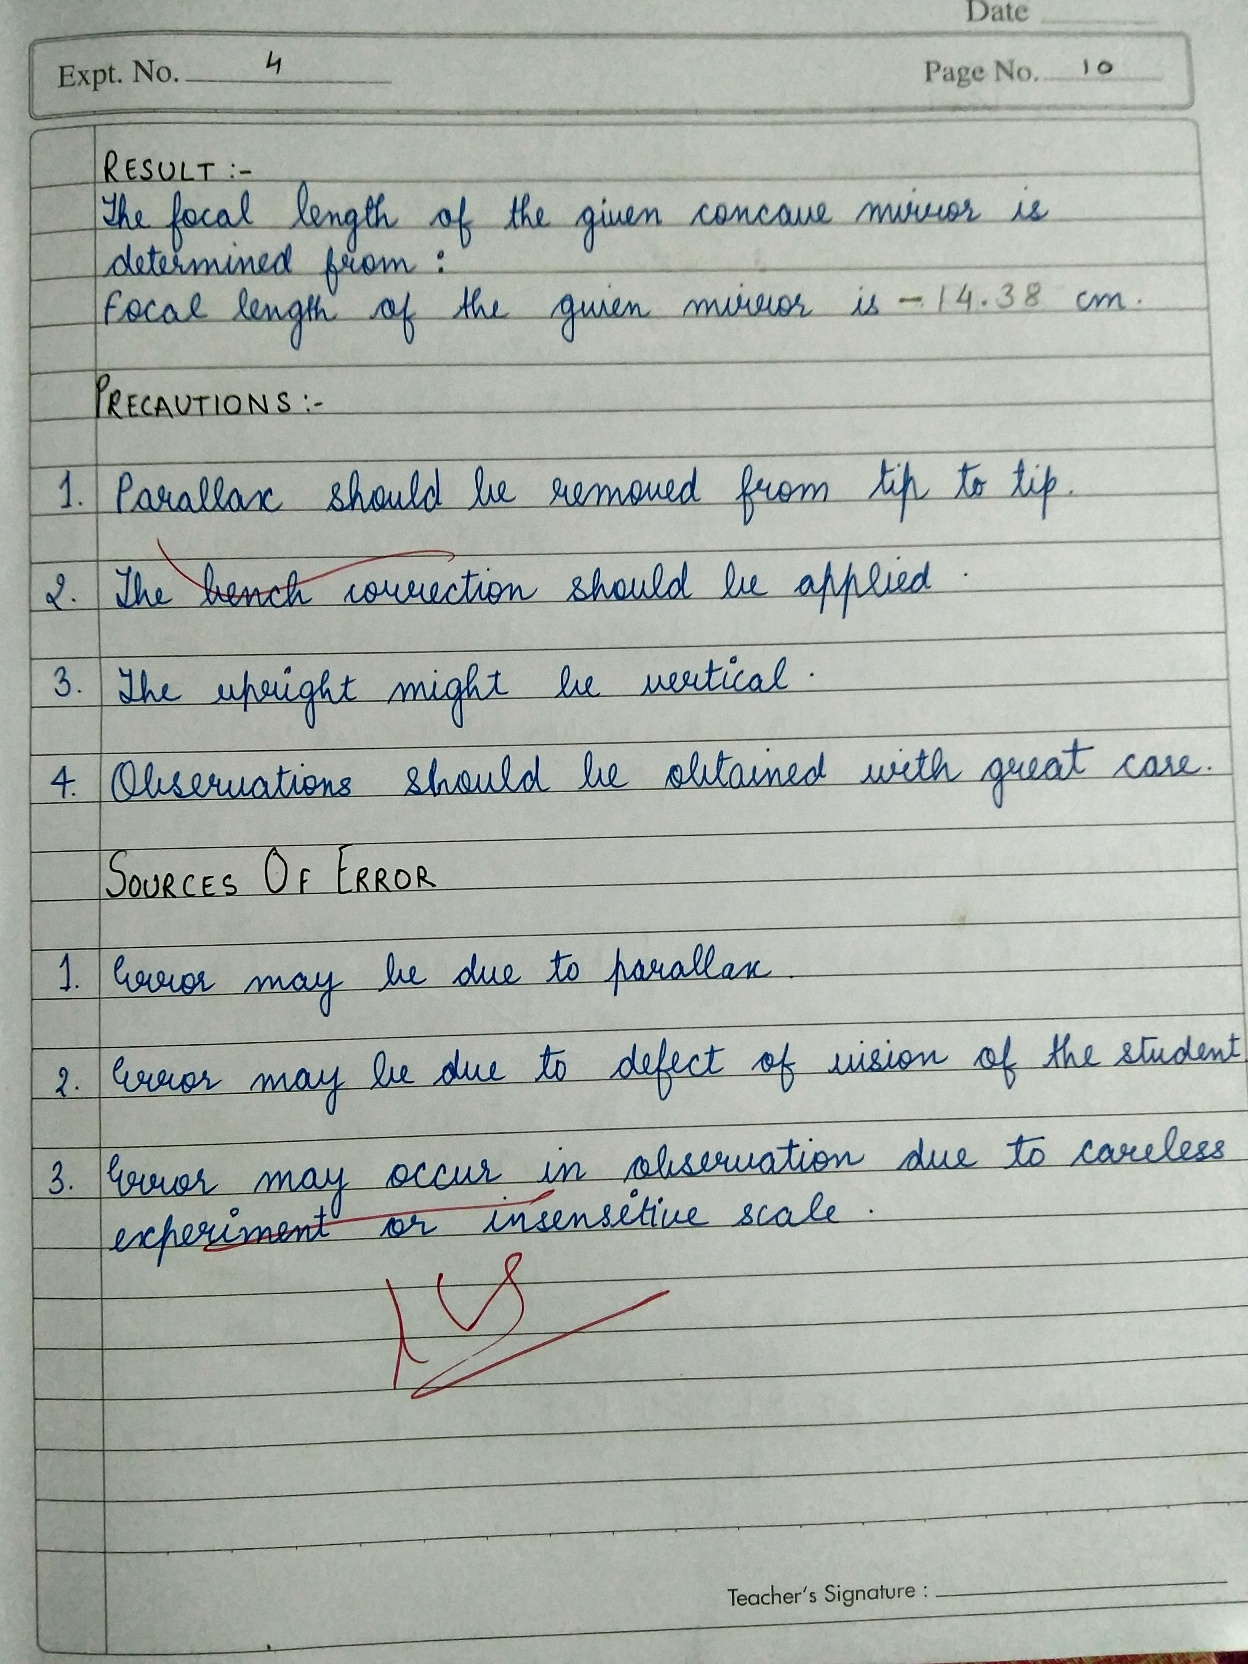 Date
Expt. No. 4
Page No. 10
RESULT :-
The focal length of the given concave mirror is
determined from :
Focal length of the given mirror is -14.38 cm.
PRECAUTIONS :-
1. Parallax should be removed from tip to tip.
2. The bench correction should be applied.
3. The upright might be vertical.
4. Observations should be obtained with great care.
SOURCES OF ERROR
1. Error may be due to parallax.
2. Error may be due to defect of vision of the student
3. Error may occur in observation due to careless
experiment or insensitive scale.
Teacher's Signature :